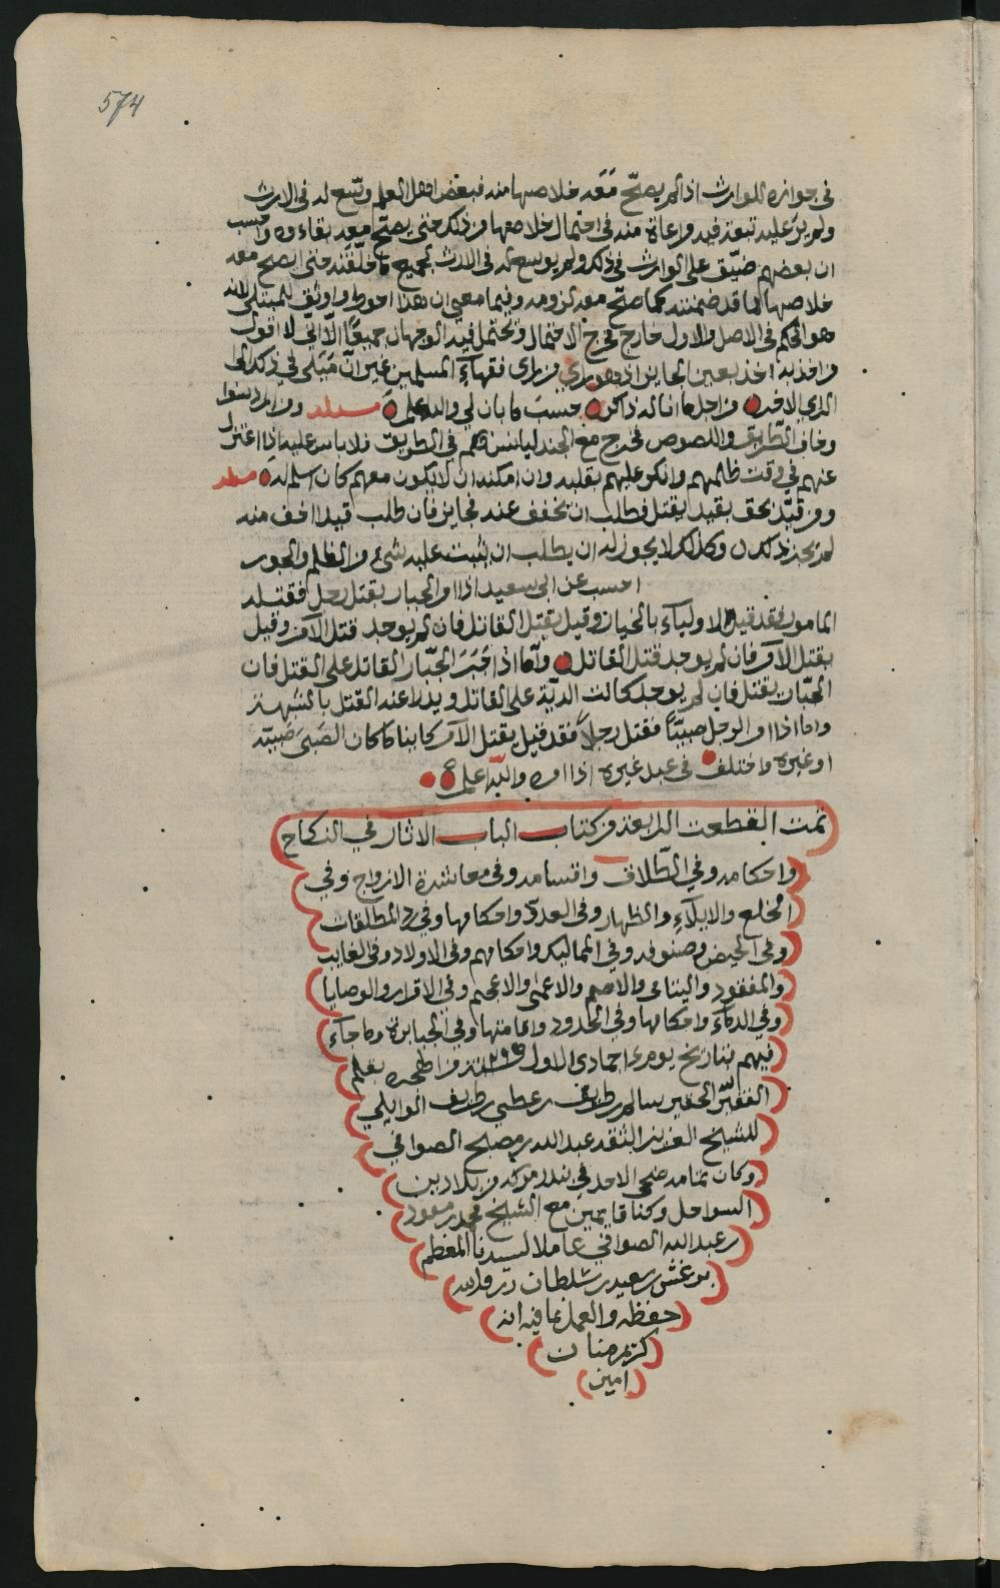 574
في جوازه للوارث اذا لم يصح معه خلاصها منه فبعض اهل العلم وسّع له في الارث
ولم ير عليه تبعة فيه مراعاة منه في احتمال خلاصها من ذلك حتى يصح معه بقاءه واحسب
ان بعضهم ضيّق على الوارث في ذلك ولم يوسع له في الارث لجميع ما خلّفته حتى يصح معه
خلاصها لما قد ضمنته كما صحّ معه لزومه وفيما معي ان هذا احوط واوثق للمبتلى لانه
هو الحكم في الاصل والاول خارج مخرج الاحتمال ويحتمل فيه الوجهان جميعًا الّا انّي لا اقول
من اخذ به اخذ بعين الجايز اذ هو راي من راي فقهاء المسلمين غير انّ مَبتلى في ذلك الى
الذي لا اخذ من اجل ما اناله ذاكر حسب ما بان لي والله اعلم مسئلة ومن اراد سفرا
وخاف الطريق واللصوص فخرج مع الجند ليانس بهم في الطريق فلا باس عليه اذا اعتزل
عنهم في وقت ظلمهم وانكر عليهم بقلبه وان امكنه ان لا يكون معهم كان اسلم له مسئلة
ومن قيّد بحق بقيد يقتل فطلب ان يخفف عنه فجايز فان طلب قيدا اخف منه
لم يجز ذلك وكذلك لا يجوز له ان يطلب ان يثبت عليه شيء من الظلم والجور
احسب عن ابي سعيد اذا امر الجبار بقتل رجل فقتله
المامور فقد قيل الاولياء بالخيار وقيل يقتل القاتل فان لم يوجد قتل الآمر وقيل
يقتل الآمر فان لم يوجد قتل القاتل وامّا اذا جَبَرَ الجبّار القاتل على القتل فان
الجبّار يقتل فان لم يوجد كانت الديّة على القاتل ويدرا عنه القتل بالشبهة
واما اذا امر الرجل صبيّاً فقتل رجلاً فقد قيل يقتل الآمر كاينا ما كان الصبيّ صبيّه
او غيره واختلف في عبد غيره اذا امره والله اعلم
تمت القطعة الرابعة من كتاب لباب الآثار في النكاح
واحكامه وفي الطّلاق واقسامه وفي معاشرة الازواج وفي
الخلع والايلاء والظهار وفي العدد واحكامها وفي رد المطلقات
وفي الحيض وصنوفه وفي المماليك واحكامهم وفي الاولاد وفي الغايب
والمفقود واليتامى والاصم والاعمى والاعجم وفي الاقرار والوصايا
وفي الدماء واحكامها وفي الحدود واقامتها وفي الجبابرة وما جاء
فيهم بتاريخ يوم ٤ جمادى الاول سنة من الهجرة بقلم
الفقير الحقير سالم بن طريف بن عطي بن طريف الوايلي
للشيخ العزيز الثقة عبد الله بن مصلح الصوافي
وكان تمامه ضحى الاحد في بندر مركه من بلادين
السواحل وكنا قايمين مع الشيخ محمد بن سعود
بن عبد الله الصوافي عاملا لسيدنا المعظم
برغش بن سعيد بن سلطان رزقه الله
حفظه والعمل بما فيه انه
كريم منان
امين